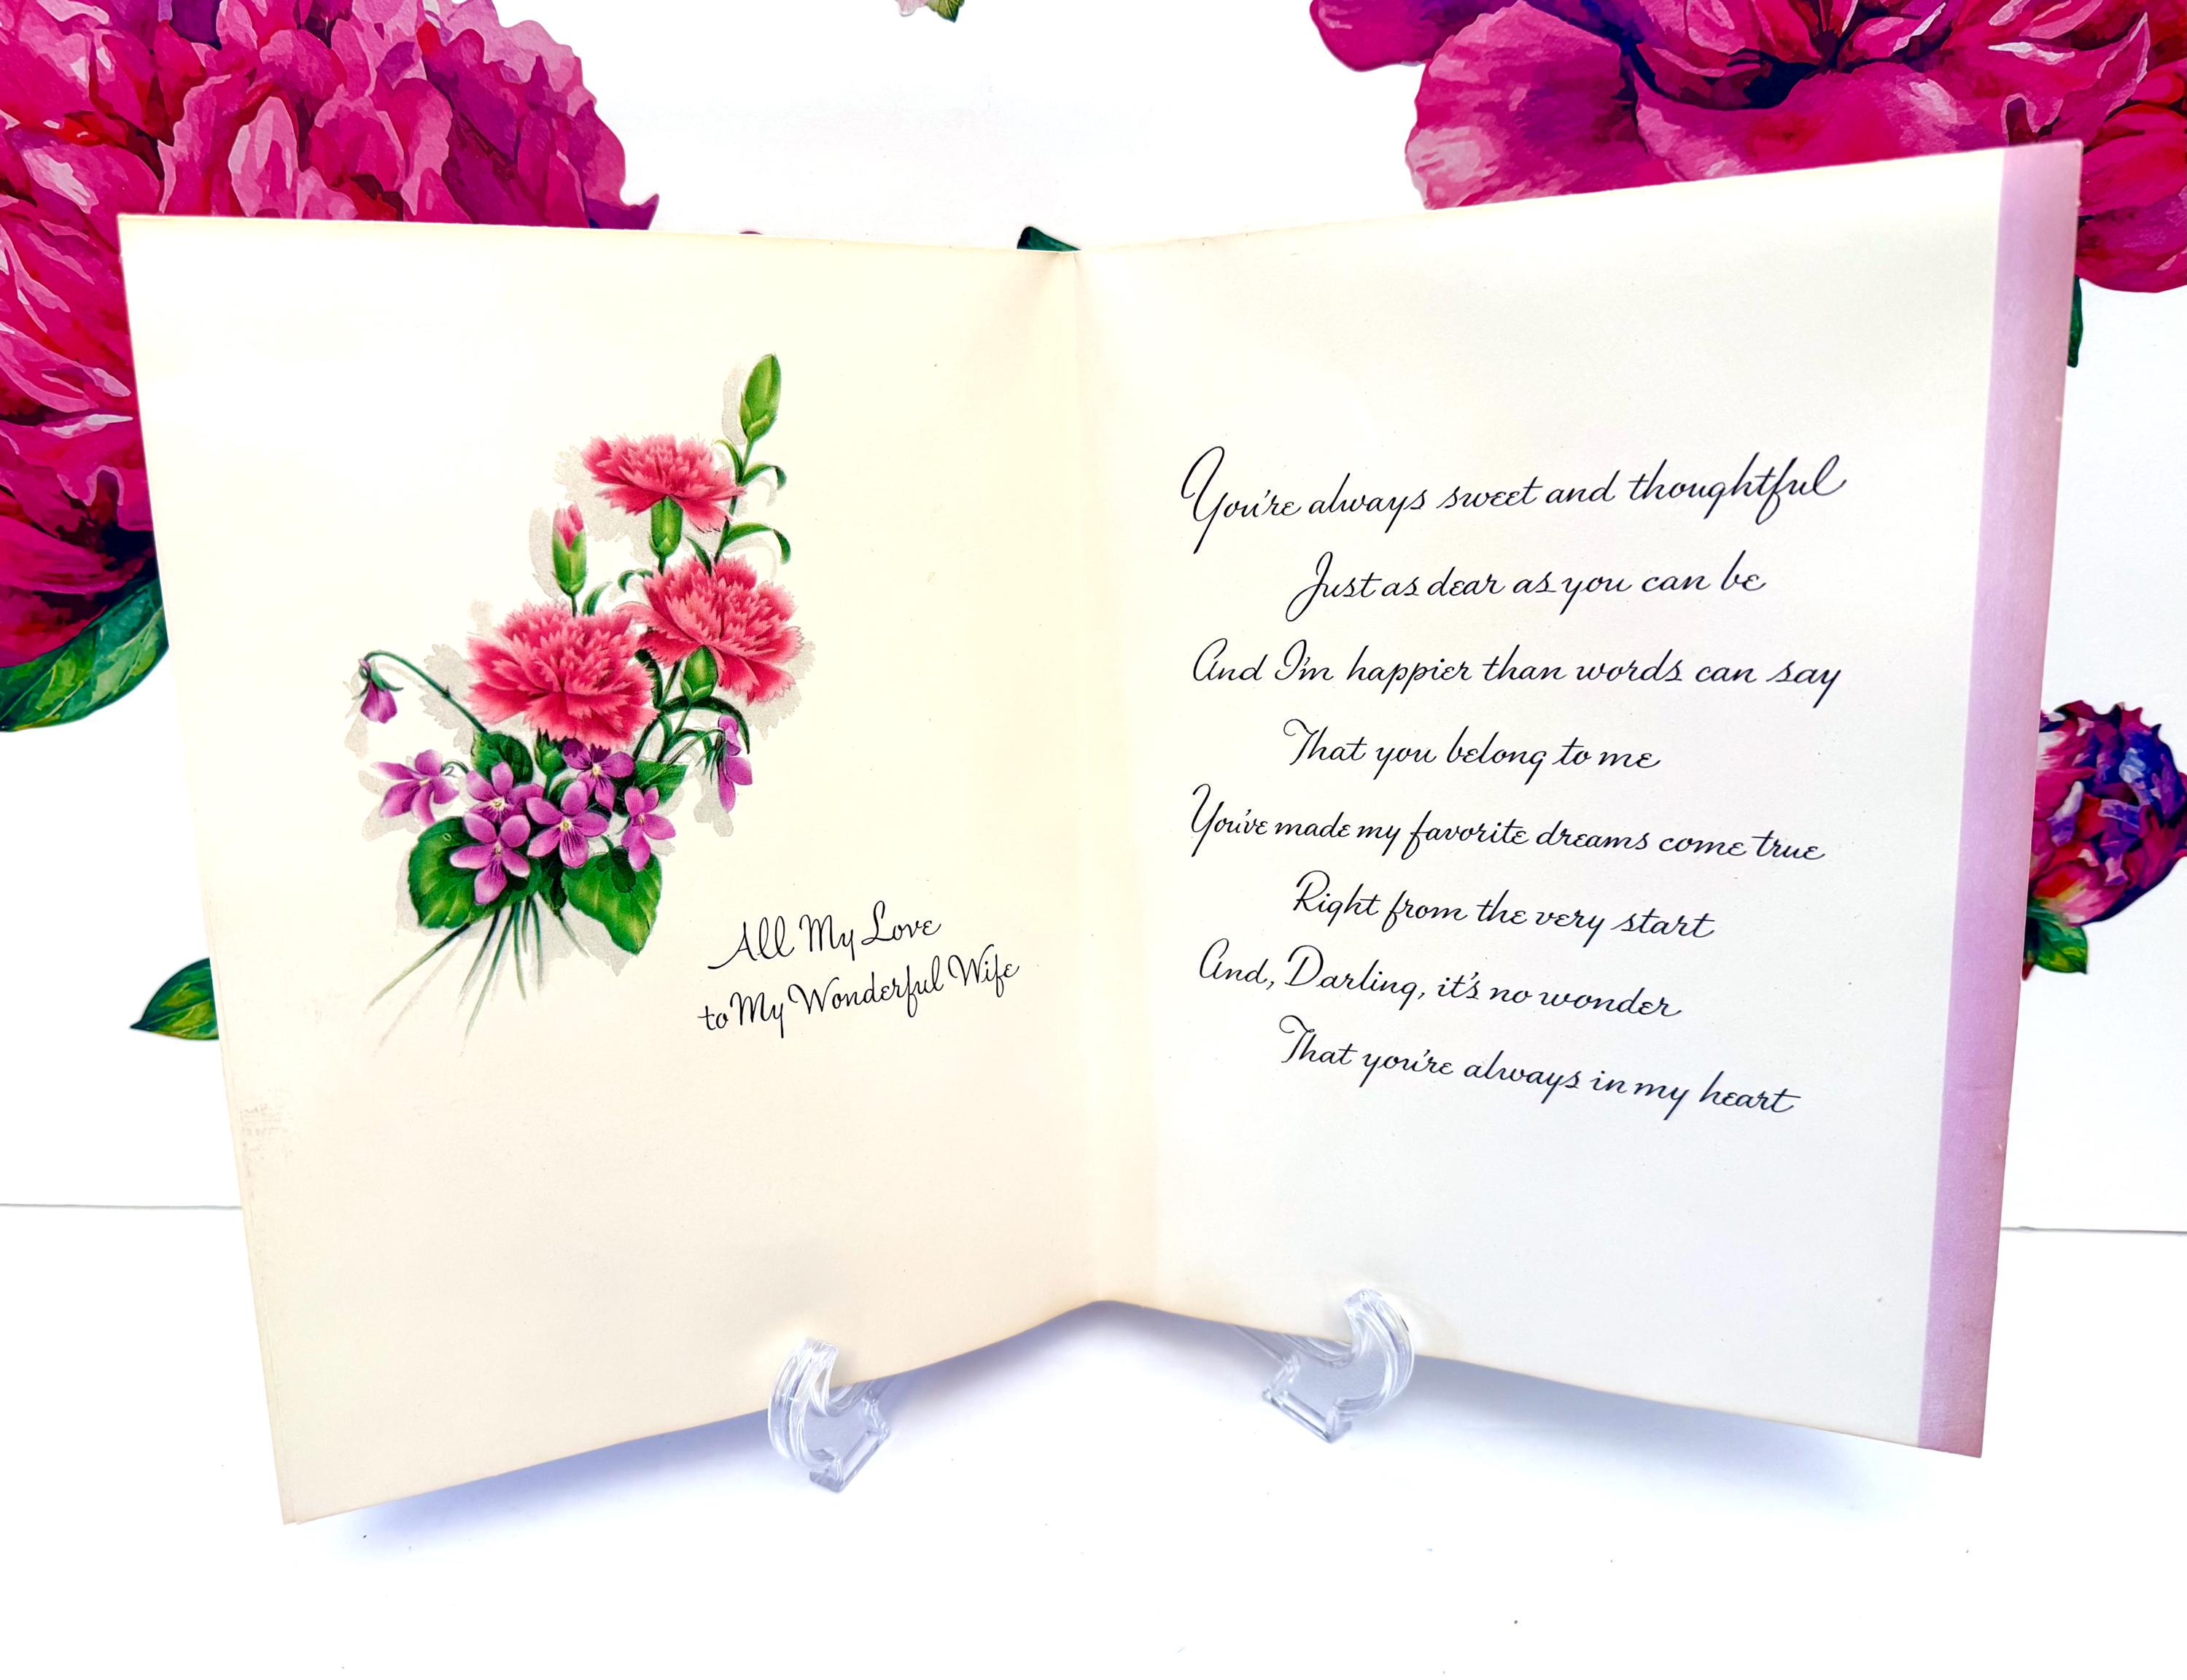 All My Love
to My Wonderful Wife
You're always sweet and thoughtful
Just as dear as you can be
And I'm happier than words can say
That you belong to me
You've made my favorite dreams come true
Right from the very start
And, Darling, it's no wonder
That you're always in my heart